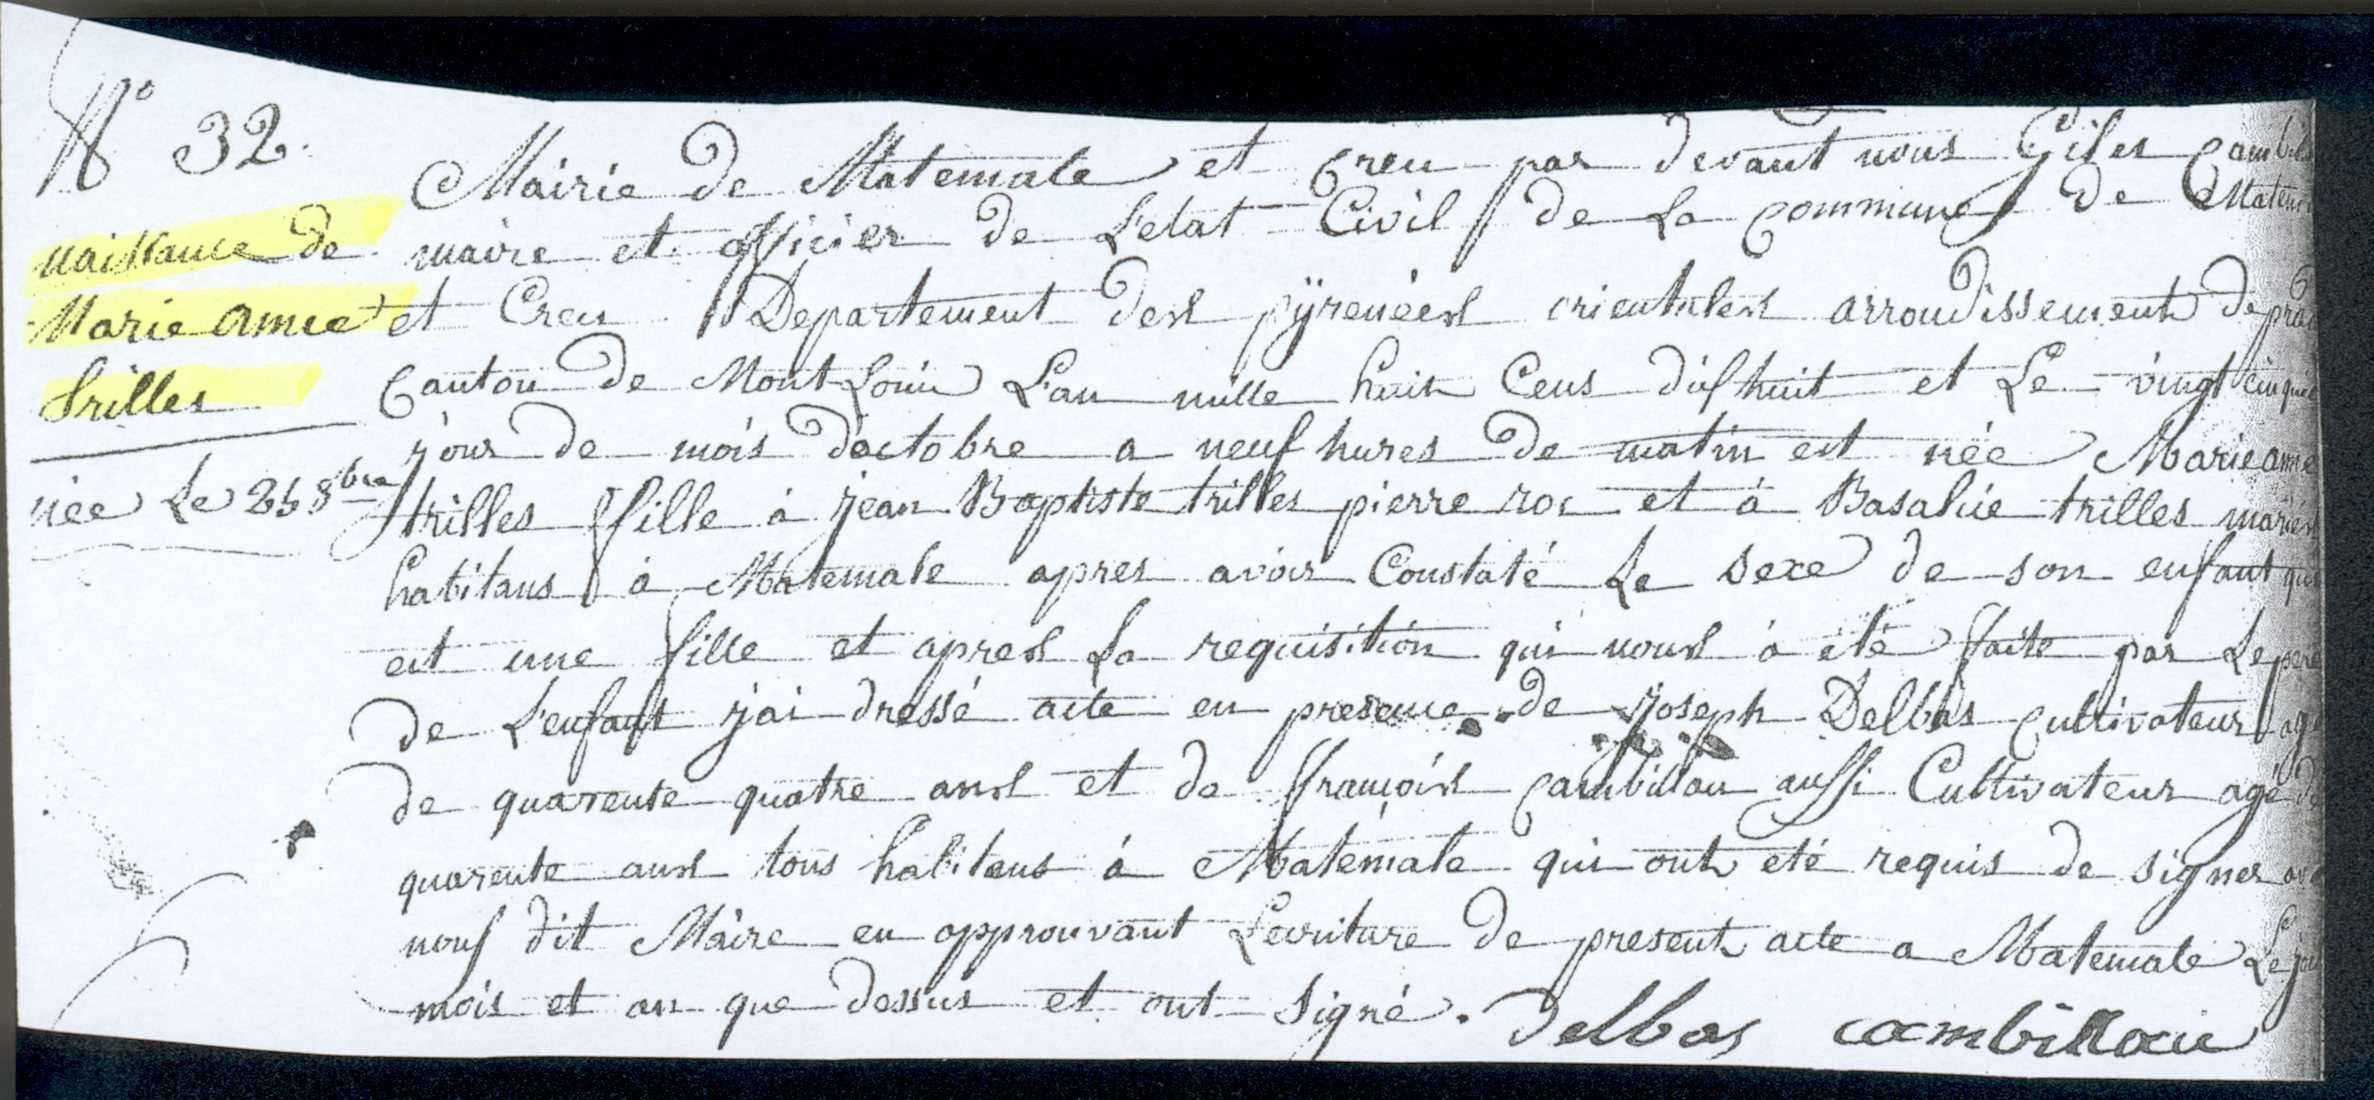 N° 32.
naissance de
Marie anne
trilles
née Le 25 8bre
Mairie de Matemale et Creu par devant nous Giles
maire et officier de L'etat Civil de La Commune de
et Creu Departement des pÿrenées orientales arrondissement de
Canton de Mont Louis L'an mille huit Cens dishuit et Le vingt
jour de mois d'octobre a neuf hures de matin est née Marie anne
trilles fille à jean Baptiste trilles pierre roc et à Basalice trilles mariés
habitans à Matemale apres avoir Constaté Le Sexe de son enfant qui
est une fille et apres La requisition qui nous à été faite par Le pere
de L'enfant j'ai dressé acte en presence de joseph Delbos Cultivateur agé
de quarente quatre ans et de françois Cambillau aussi Cultivateur agé de
quarente ans tous habitans à Matemale qui ont eté requis de signer
nous dit Maire en approuvant L'ecriture de present acte a Matemale Le
mois et an que dessus et ont Signé.
Delbos Cambillau